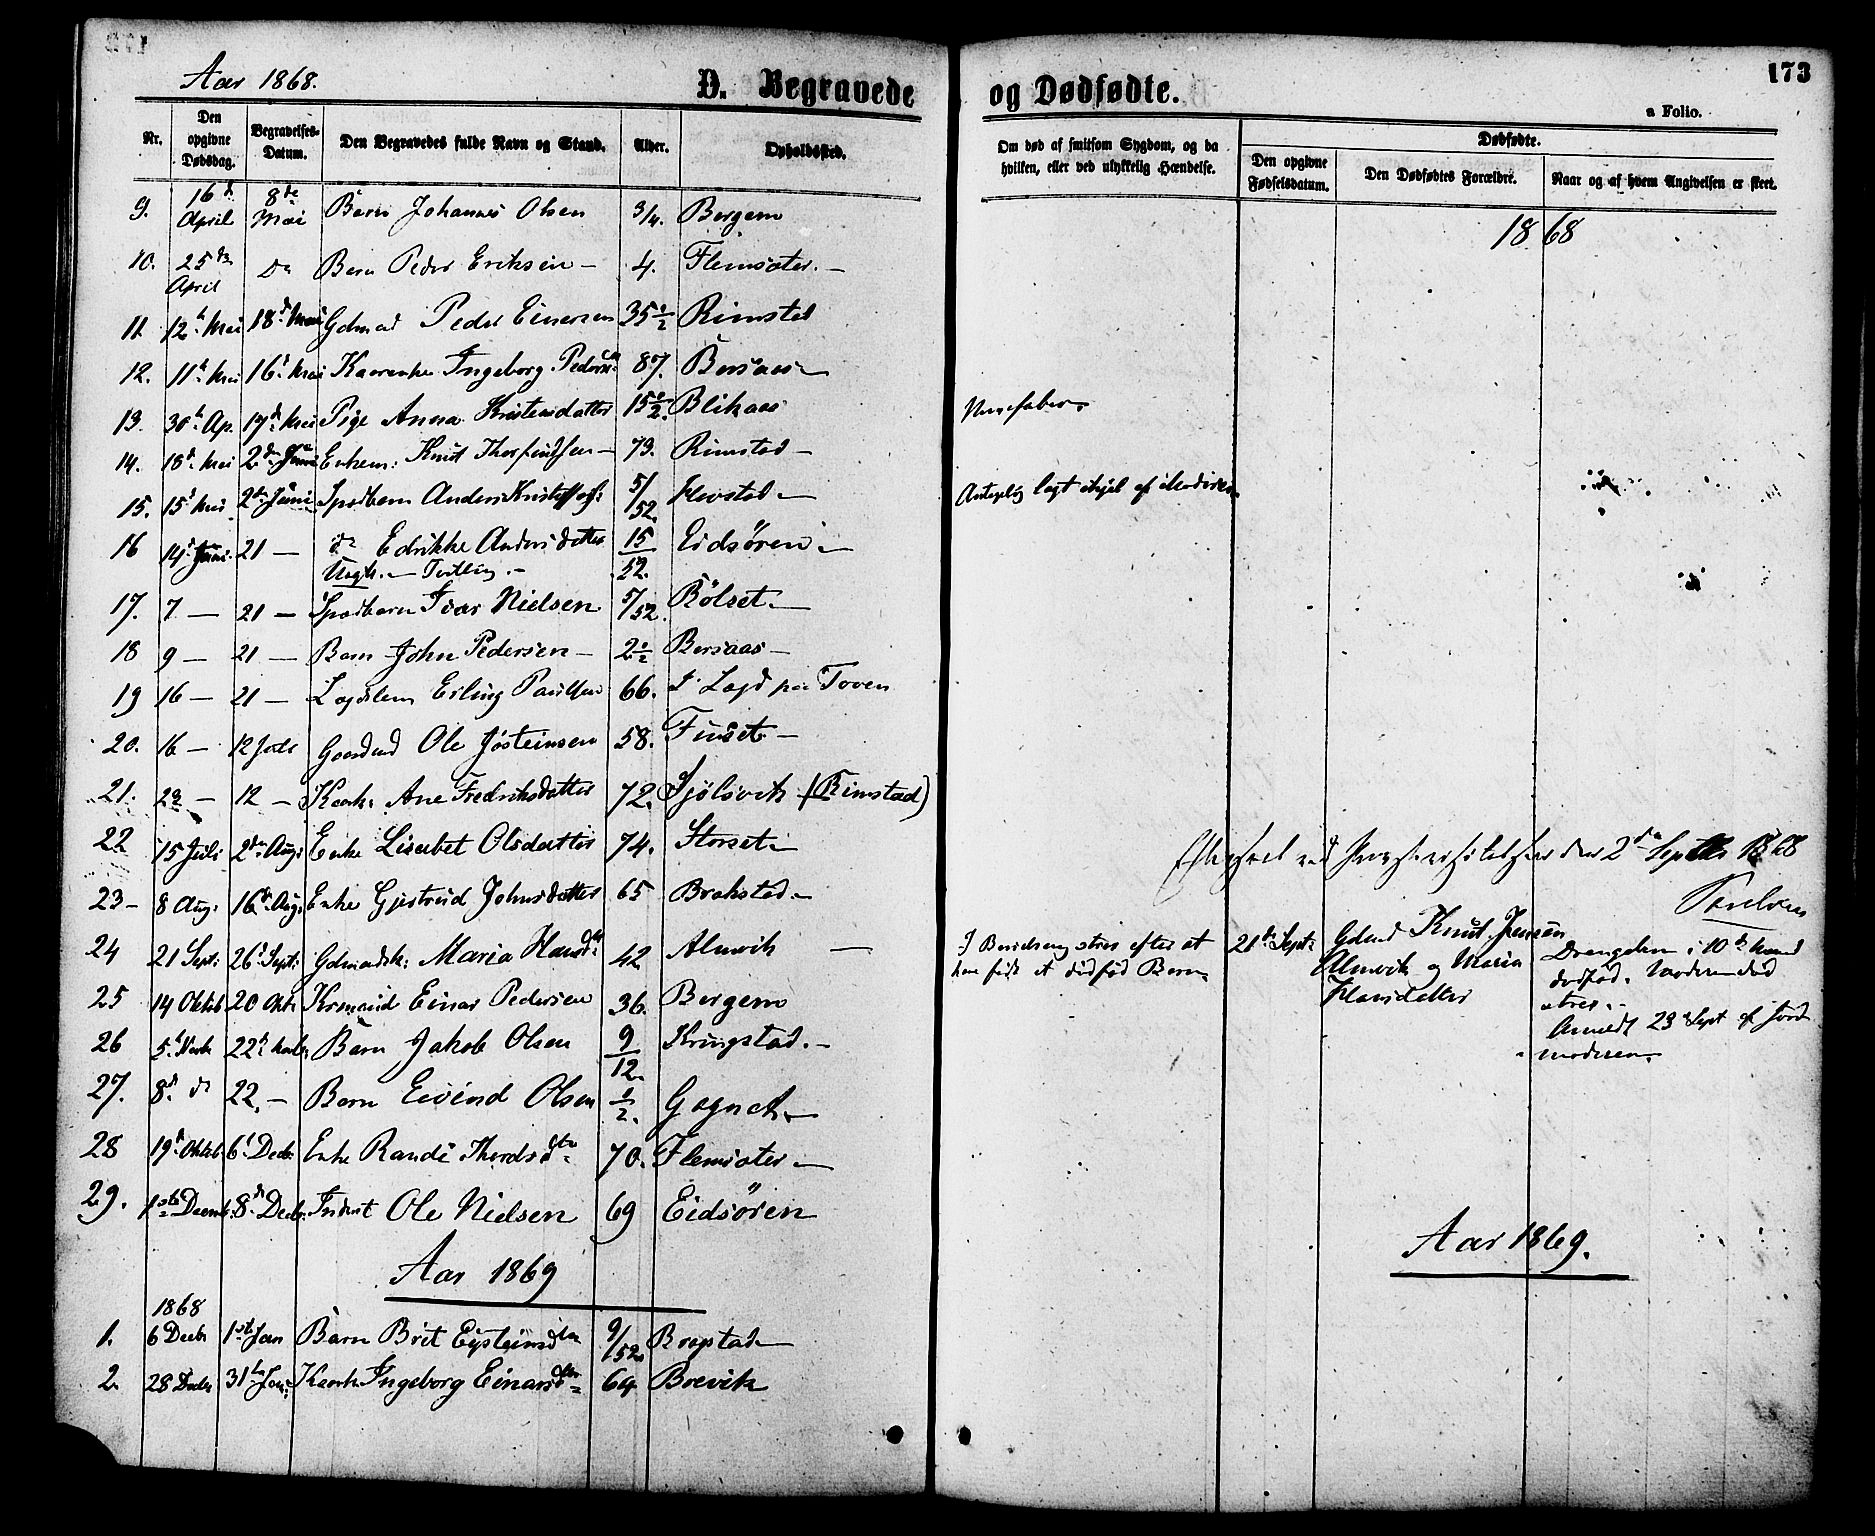 Aar 1868.
D. Begravede og Dødfødte.
173
a Folio.
Nr.
Den opgivne Dødsdag.
Begravelses-Datum.
Den Begravedes fulde Navn og Stand.
Alder.
Opholdssted.
Om død af smitsom Sygdom, og da hvilken, eller ved ulykkelig Hændelse.
Dødfødte.
Den opgivne Fødselsdatum.
Den Dødfødtes Forældre.
Naar og af hvem Angivelsen er skeet.
1868
9. 16 April 8de Mai Barn Johannes Olsen 3/4. Bergem
10. 25de April do Barn Peder Eriksen – 4. Flemsæter. –
11. 12 Mai 18 Mai Gdmad Peder Einersen 35 1/2 Rimstad
12. 11 Mai 16 Mai Ingeborg Peders 87. Bersaas –
13. 30 Ap. 17 Mai Pige Anna Kristensdatter 15 1/2. Blikaas
14. 18 Mai 2den Juni Enkem: Knut Thorfindsen – 79. Rimstad –
15. 15 Mai 2den Juni Spædbarn Anders 5/52. –
af Moderen
16 14 Juni 21 – do Edrikke Andersdatter 15/52. Eidsören –
Uægte. – Tvilling. –
17. 7 – 21 – Spædbarn Ivar Nielsen 5/52. Rölset. –
18 9 – 21 – Barn John Pedersen – 2 1/2 Bersaas –
19 16 – 21 – Lægdslem Erling Paulsen 66. I Lægd paa Toven
20. 16 – 12 Juli Gaardmd Ole Jösteinsen 58. Finset –
21. 22 – 12 – Kaark: Ane Fredriksdatter 72. Sjölsvik (Rimstad)
22 15 Juli 2den Aug: Enke Lisabet Olsdatter 74. Storset –
2den Septbr 1868
23 – 8 Aug. 16de Aug: Enke Gjertrud Johnsdatter 65 Brakstad –
24 21 Sept: 26 Sept: Gdmandsk: Maria Hansd 42 Almvik –
efter at have født et dödfød Barn
21de Sept:
Gdmd Knut Jensen
Almvik og Maria
Hansdatter
Drengebarn i 10de
dödfød. Moderen död
strax. –
Anmeldt 23 Sept af Jord
moderen
25 14 Oktob 20 Oktr Einar Pedersen 36. Bergem
26 5 Novbr 22 Novb: Barn Jakob Olsen 9/12. Kringstad. –
27. 8d. do 22. – Barn Eivind Olsen 1/2. Gagnat –
28 19d Oktob 6 Decbr Enke Randi Thordsd 70. Flemsæter –
29. 1ste Decemb. 8d Decbr. Inderst Ole Nielsen 69 Eidsören
Aar 1869
Aar 1869.
1868
1. 6 Decbr 1ste Jan Barn Brit Eysteinsd 9/52. –
2. 28 Decbr 31 Jan: Kaark Ingeborg Einarsd 64 Brevik